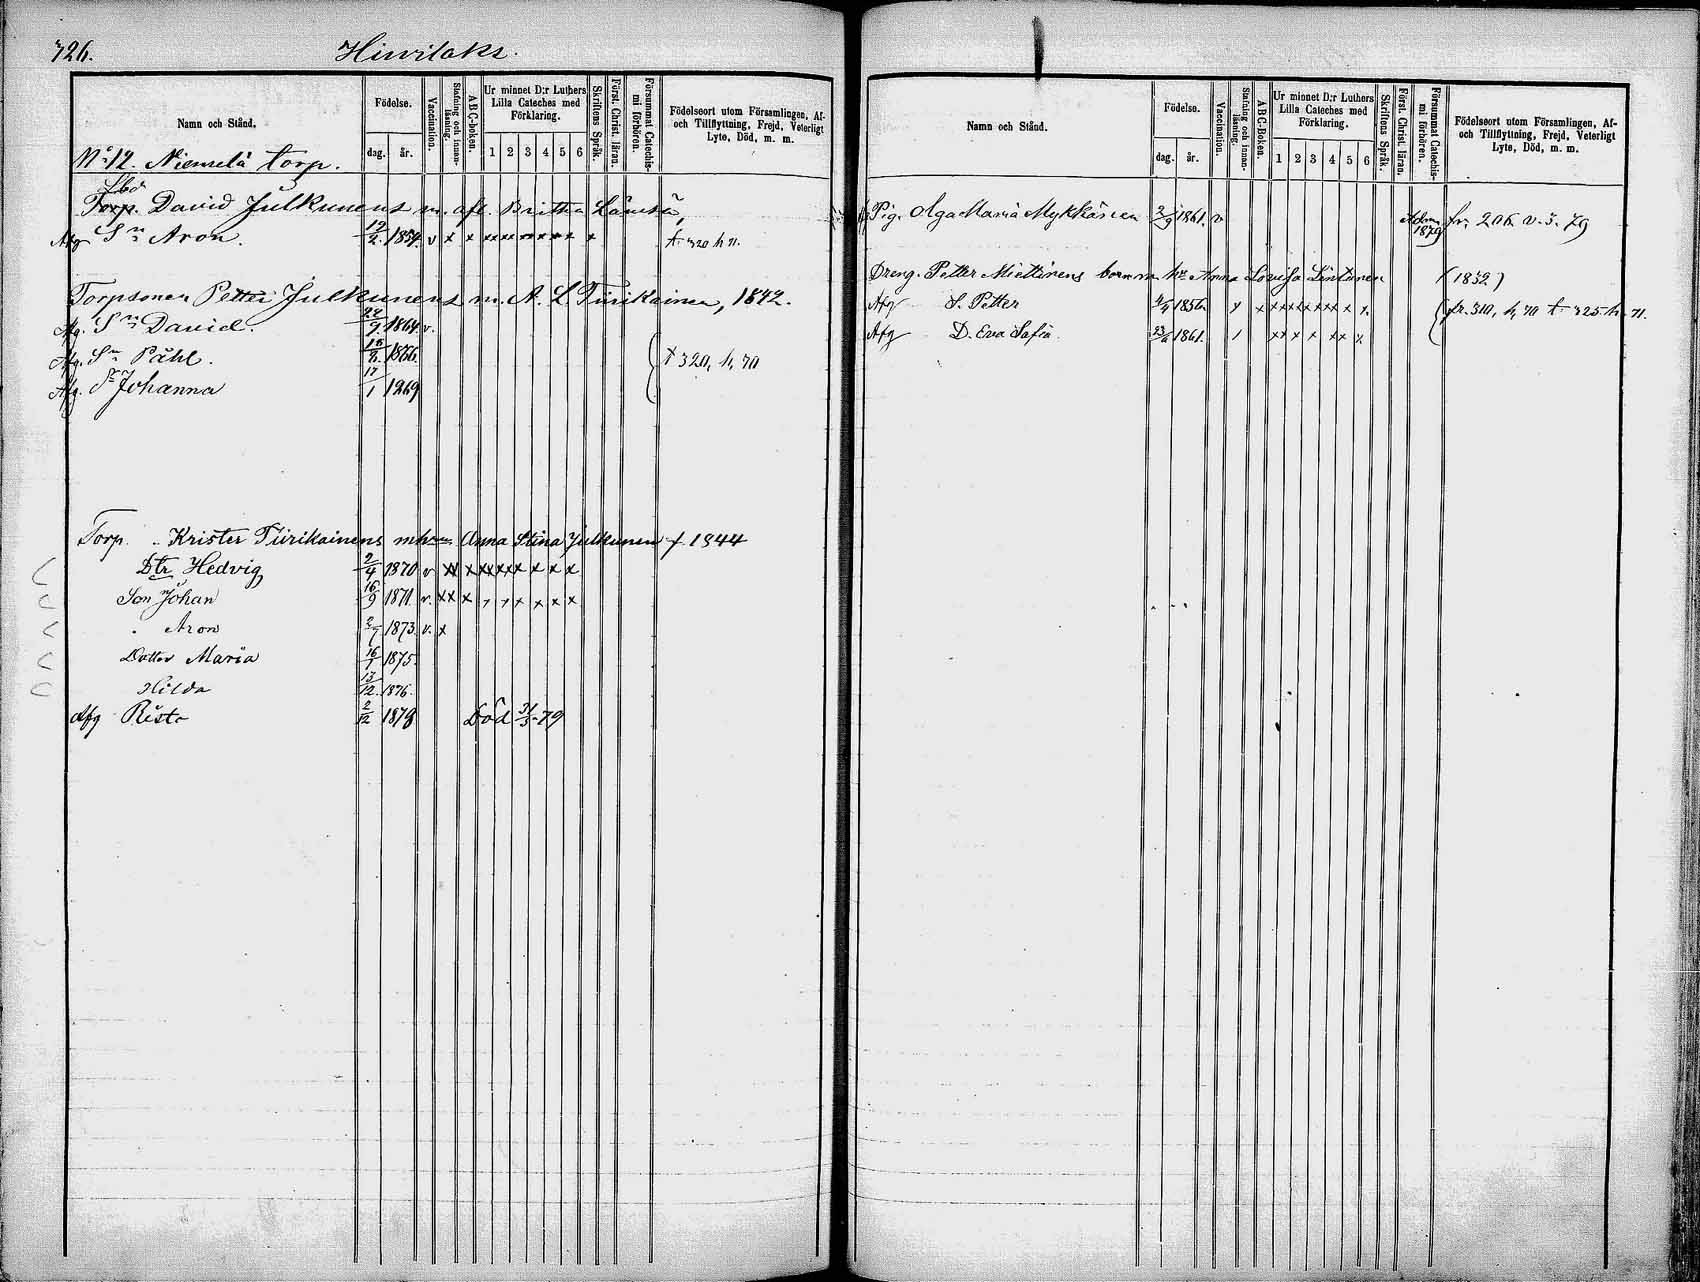 726.
Hinrilaks.
Namn och Stånd.
Födelse.
dag. år.
Vaccination.
Stafning och innanläsning.
A B C-boken.
Ur minnet D:r Luthers Lilla Cateches med Förklaring.
1 2 3 4 5 6
Skriftens Språk.
Först. Christ. läran.
Försummat Catechismi förhören.
Födelseort utom Församlingen, Af- och Tillflyttning, Frejd, Veterligt Lyte, Död, m. m.
No 12. Niemelä torp.
Torp. David Julkunens m. afl. Britha Lämsä,
Afg Sn Aron. 12/2. 1854. v x x xx xx xx x x t. 320 h 71.
Torpsonen Petter Julkunens m. A. L. Tiirikainen, 1842.
Afg. Sn David. 22/9. 1864. v.
Afg. Sn Påhl. 15/8. 1866. t 320, h, 70
Afg. Johanna 17/1 1869
Torp. Krister Tiirikainens m hn Anna Stina Julkunen f. 1844
Dtr Hedvig 2/4 1870 v xx x xx xx x x x x
Son Johan 16/9 1871. v. xx x x x x x x x
Aron 2/7 1873. v. x
Dotter Maria 16/1 1875.
Hilda 13/12. 1876.
Afg Risto 2/12 1878 Död 31/3-79
Namn och Stånd.
Födelse.
dag. år.
Vaccination.
Stafning och innanläsning.
A B C-Boken.
Ur minnet D:r Luthers Lilla Cateches med Förklaring.
1 2 3 4 5 6
Skriftens Språk.
Först. Christ. läran.
Försummat Catechismi förhören.
Födelseort utom Församlingen, Af- och Tillflyttning, Frejd, Veterligt Lyte, Död, m. m.
Pig. Olga Maria Mykkänen 2/9 1861. v Adm 1879 fr. 206 v. 3. 79
Dreng. Petter Miettinens barn m. hu Anna Lovisa Lintunen (1832)
Afg S. Petter 1856. fr. 310, h, 70 t. 325 h. 71.
Afg D. Eva Sofia 1861.